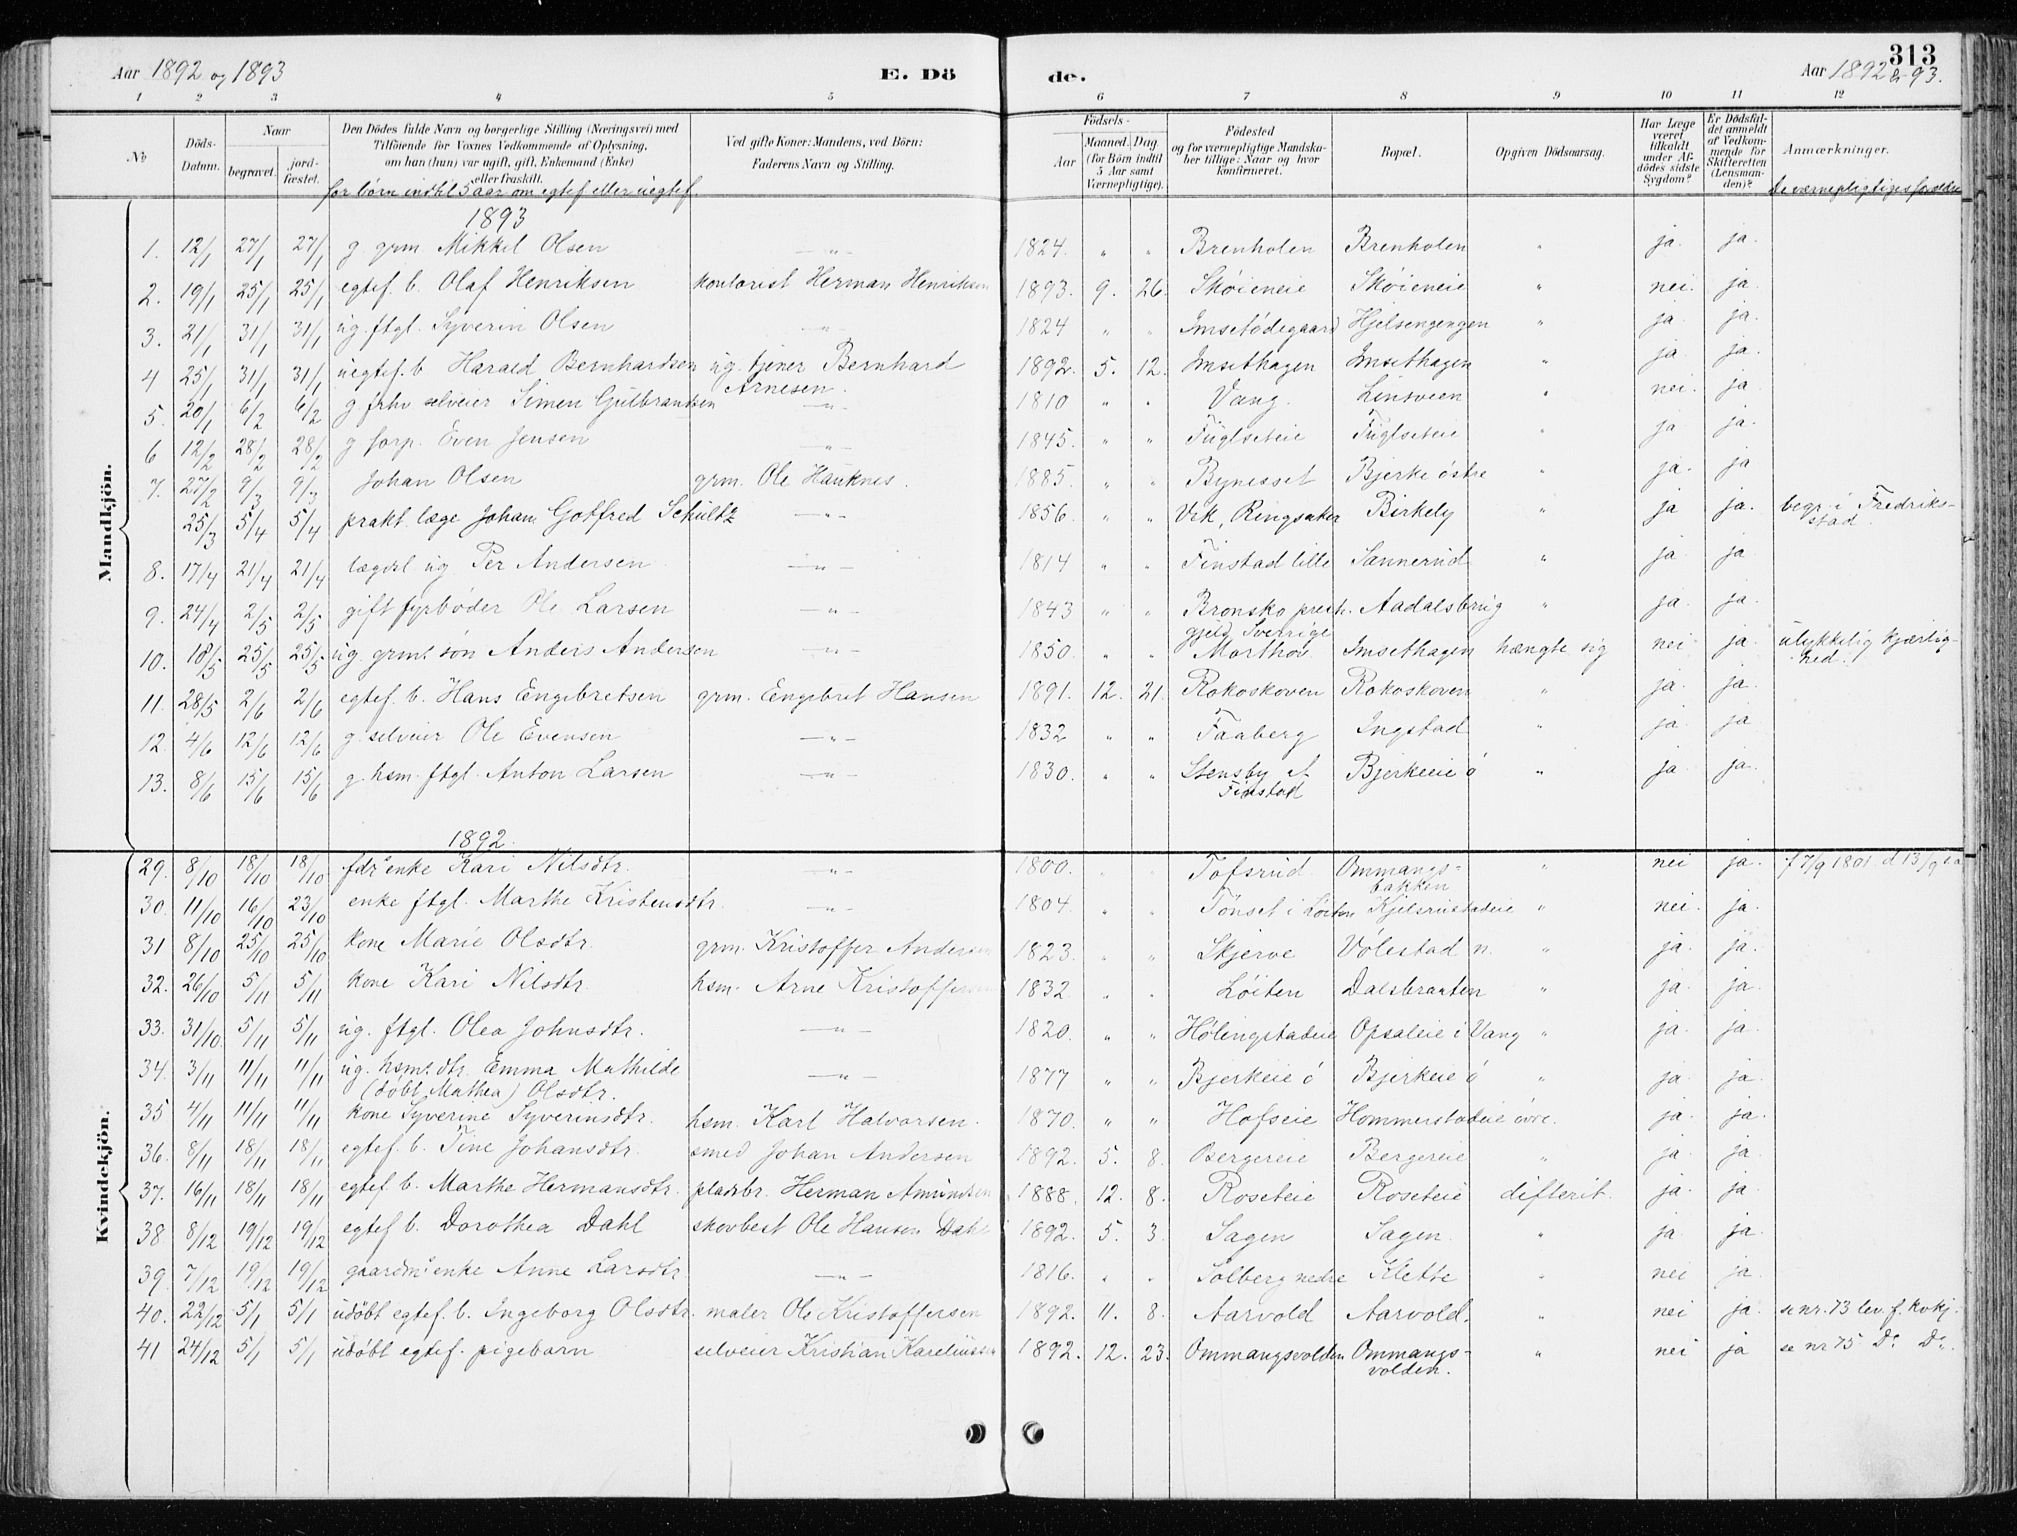 Aar 1892 og 1893
E. Dö
de.
Aar 1892 & 93.
313
1 2 3 4 5 6 7 8 9 10 11 12
No
Döds-Datum.
Naar
begravet.
jord-fæstet.
Den Dödes fulde Navn og borgerlige Stilling (Næringsvei) med
Tilföiende for Voxnes Vedkommende af Oplysning,
om han (hun) var ugift, gift, Enkemand (Enke)
eller fraskilt.
for børn indtil 5 aar om egtef eller uegtef.
Ved gifte Koner: Mandens, ved Börn:
Faderens Navn og Stilling.
Födsels-
Aar
Maaned. Dag.
(for Börn indtil
5 Aar samt
Værnepligtige).
Födested
og for værnepligtige Mandska-
ber tillige: Naar og hvor
konfirmeret.
Bopæl.
Opgiven Dödsaarsag.
Har Læge
været
tilkaldt
under Af-
dödes sidste
Sygdom?
Er Dödsfal-
det anmeldt
af Vedkom-
mende for
Skifteretten
(Lensman-
den)?
Anmærkninger.
De værnepligtiges forældre
Mandkjön.
1893
1. 12/1 27/1 27/1 g. grm Mikkel Olsen —„— 1824. „ „ Brenholen Brenholen „ ja. ja.
2. 19/1 25/1 25/1 egtef. b. Olaf Henriksen kontorist Herman Henriksen 1893. 9. 26. Skøieneie Skøieneie „ nei. ja.
3. 21/1 31/1 31/1 ug. ftgl. Syverin Olsen —„— 1824 „ „ Imsetødegaard Hjelsengengen „ ja. ja.
4 25/1 31/1 31/1 uegtef. b Harald Bernhardsen ug. tjener Bernhard Arnesen. 1892. 5. 12. Imsethagen Imsethagen „ ja ja.
5. 20/1 6/2 6/2 g frhv selveier Simen Gulbrandsen —„— 1810 „ „ Vang. Linsveen „ nei. ja.
6 12/2 28/2 28/2 g forp. Even Jensen —„— 1845. „ „ Fuglseteie Fuglseteie „ ja ja.
7. 27/2 9/3 9/3 Johan Olsen grm. Ole Hauknes. 1885. „ „ Bynesset Bjerke østre ja. ja
25/3 5/4 5/4 prakt. læge Johan Gotfred Schultz —„— 1856. „ „ Vik, Ringsaker Birkely ja ja. begr. i Fredriks-
stad.
8. 17/4 21/4 21/4 lægdsl ug. Per Andersen —„— 1814 „ „ Finstad lille Sannerud „ ja ja
9. 24/4 2/5 2/5 gift fyrbøder Ole Larsen —„— 1843 „ „ Bronsko prest-
gjeld Sverrige Aadalsbrug „ ja. ja.
10. 18/5 25/5 25/5 ug. grms. søn Anders Andersen —„— 1850. „ „ Morthov Imsethagen hængte sig nei ja. ulykkelig kjærlig-
hed.
11. 28/5 2/6 2/6 egtef. b. Hans Engebretsen grm. Engebret Hansen 1891. 12. 21. Rokoskoven Rokoskoven „ ja. ja.
12. 4/6 12/6 12/6 g. selveier Ole Evensen —„— 1832 „ „ Faaberg Ingstad „ ja. ja
13. 8/6 15/6 15/6 g. hsm. ftgl. Anton Larsen —„— 1830. „ „ Stensby ... Finstad Bjerkeeie ø „ ja. ja.
Kvindekjön.
1892.
29. 8/10 18/10 18/10 fdrs enke Kari Nilsdtr. —„— 1800. Tofsrud Ommangs-
bakken „ nei ja. f 7/9 1801 d 13/9 s.a
30. 11/10 16/10 23/10 enke ftgl. Marthe Kristensdtr. —„— 1804. „ „ Tønset i Løiten Kjelsrustadeie „ nei. ja.
31 8/10 25/10 25/10 kone Marie Olsdtr. grm. Kristoffer Andersen 1823. „ „ Skjerve Vølestad n. „ ja. ja.
32. 26/10 5/11 5/11 kone Kari Nilsdtr. hsm. Arne Kristoffersen 1832 „ „ Løiten Dalsbraaten „ ja. ja.
33. 31/10. 5/11 5/11 ug. ftgl. Olea Johnsdtr. —„— 1820. „ „ Hølingstadeie Opsaleie i Vang „ ja. ja.
34. 3/11 11/11 11/11 ug. hsms. dtr. Emma Mathilde
(døbt Mathea) Olsdtr. —„— 1877 „ „ Bjerkeie ø Bjerkeie ø „ ja. ja.
35 4/11 11/11 11/11 kone Syverine Syverinsdtr. hsm. Karl Halvorsen. 1870. „ „ Hofseie Hommerstadeie øvre. ja. ja.
36. 8/11 18/11 18/11 egtef. b. Tine Johansdtr. smed Johan Andersen 1892. 5. 8. Bergereie Bergereie „ ja. ja.
37. 16/11 18/11 18/11 egtef. b. Marthe Hermansdtr. pladsbr. Herman Amundsen 1888. 12. 8. Roseteie Roseteie difterit. ja. ja
38 8/12 19/12 19/12 egtef b. Dorothea Dahl skovbest Ole Hansen Dahl 1892. 5. 3. Sagen Sagen. „ ja. ja.
39. 7/12 19/12 19/12 gaardms enke Anne Larsdtr —„— 1816. „ „ Solberg nedre Klette „ nei ja.
40. 22/12 5/1 5/1 udøbt egtef. b. Ingeborg Olsdtr. maler Ole Kristoffersen 1892. 11. 8. Aarvold Aarvold. „ nei ja. se nr. 73 lev. f. kvkj.
41 24/12 5/1 5/1 udøbt egtef. pigebarn selveier Kristian Kareliussen 1892. 12. 23. Ommangsvolden Ommangs-
volden. „ nei ja se nr 75 Do Do.